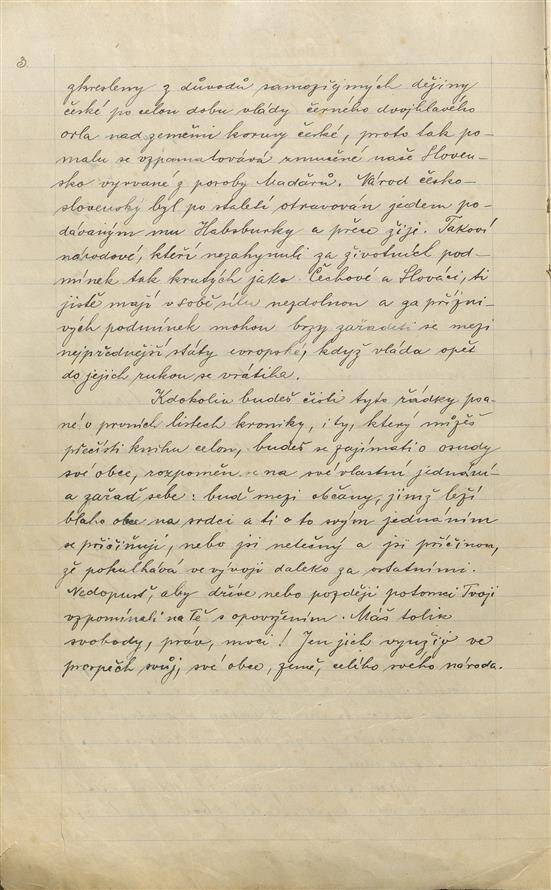 3
zkresleny z důvodů samozřejmých dějiny
české po celou dobu vlády černého dvojhlavého
orla nad zeměmi koruny české, proto tak po-
malu se vzpamatovává zmučené naše Sloven-
sko vyrvané z poroby Maďarů. Národ česko-
slovenský byl po staletí otravován jedem po-
dávaným mu Habsburky a přece žije. Takoví
národové, kteří nezahynuli za životních pod-
mínek tak krutých jako Čechové a Slováci, ti
jistě mají v sobě sílu nezdolnou a za přízni-
vých podmínek mohou brzy zařaditi se mezi
nejpřednější státy evropské, když vláda opět
do jejich rukou se vrátila.
Kdokoliv budeš čísti tyto řádky psa-
né v prvních listech kroniky, i ty, který můžeš
přečísti knihu celou, budeš se zajímati o osudy
své obce, rozpomeň se na své vlastní jednání
a zařaď sebe: buď mezi občany, jimž leží
blaho obce na srdci a ti o to svým jednáním
se přičiňují, nebo jsi netečný a jsi příčinou,
že pokulhává ve vývoji daleko za ostatními.
Nedopusť, aby dříve nebo později potomci Tvoji
vzpomínali na Tě s opovržením. Máš tolik
svobody, práv, moci! Jen jich využij ve
prospěch svůj, své obce, země, celého svého národa.